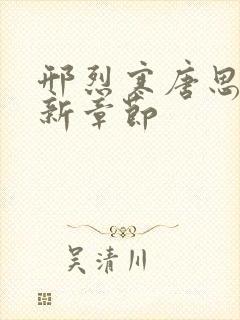 邢烈寒唐思
新章节
吴清川